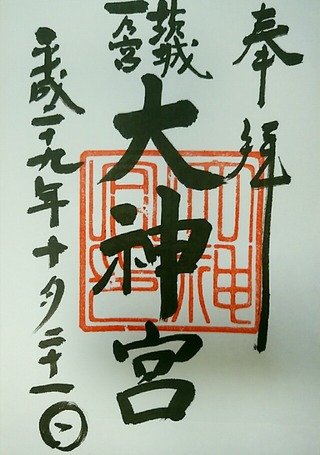 奉拝
茨城
一乃宮
大神宮
平成二十九年十月二十一日